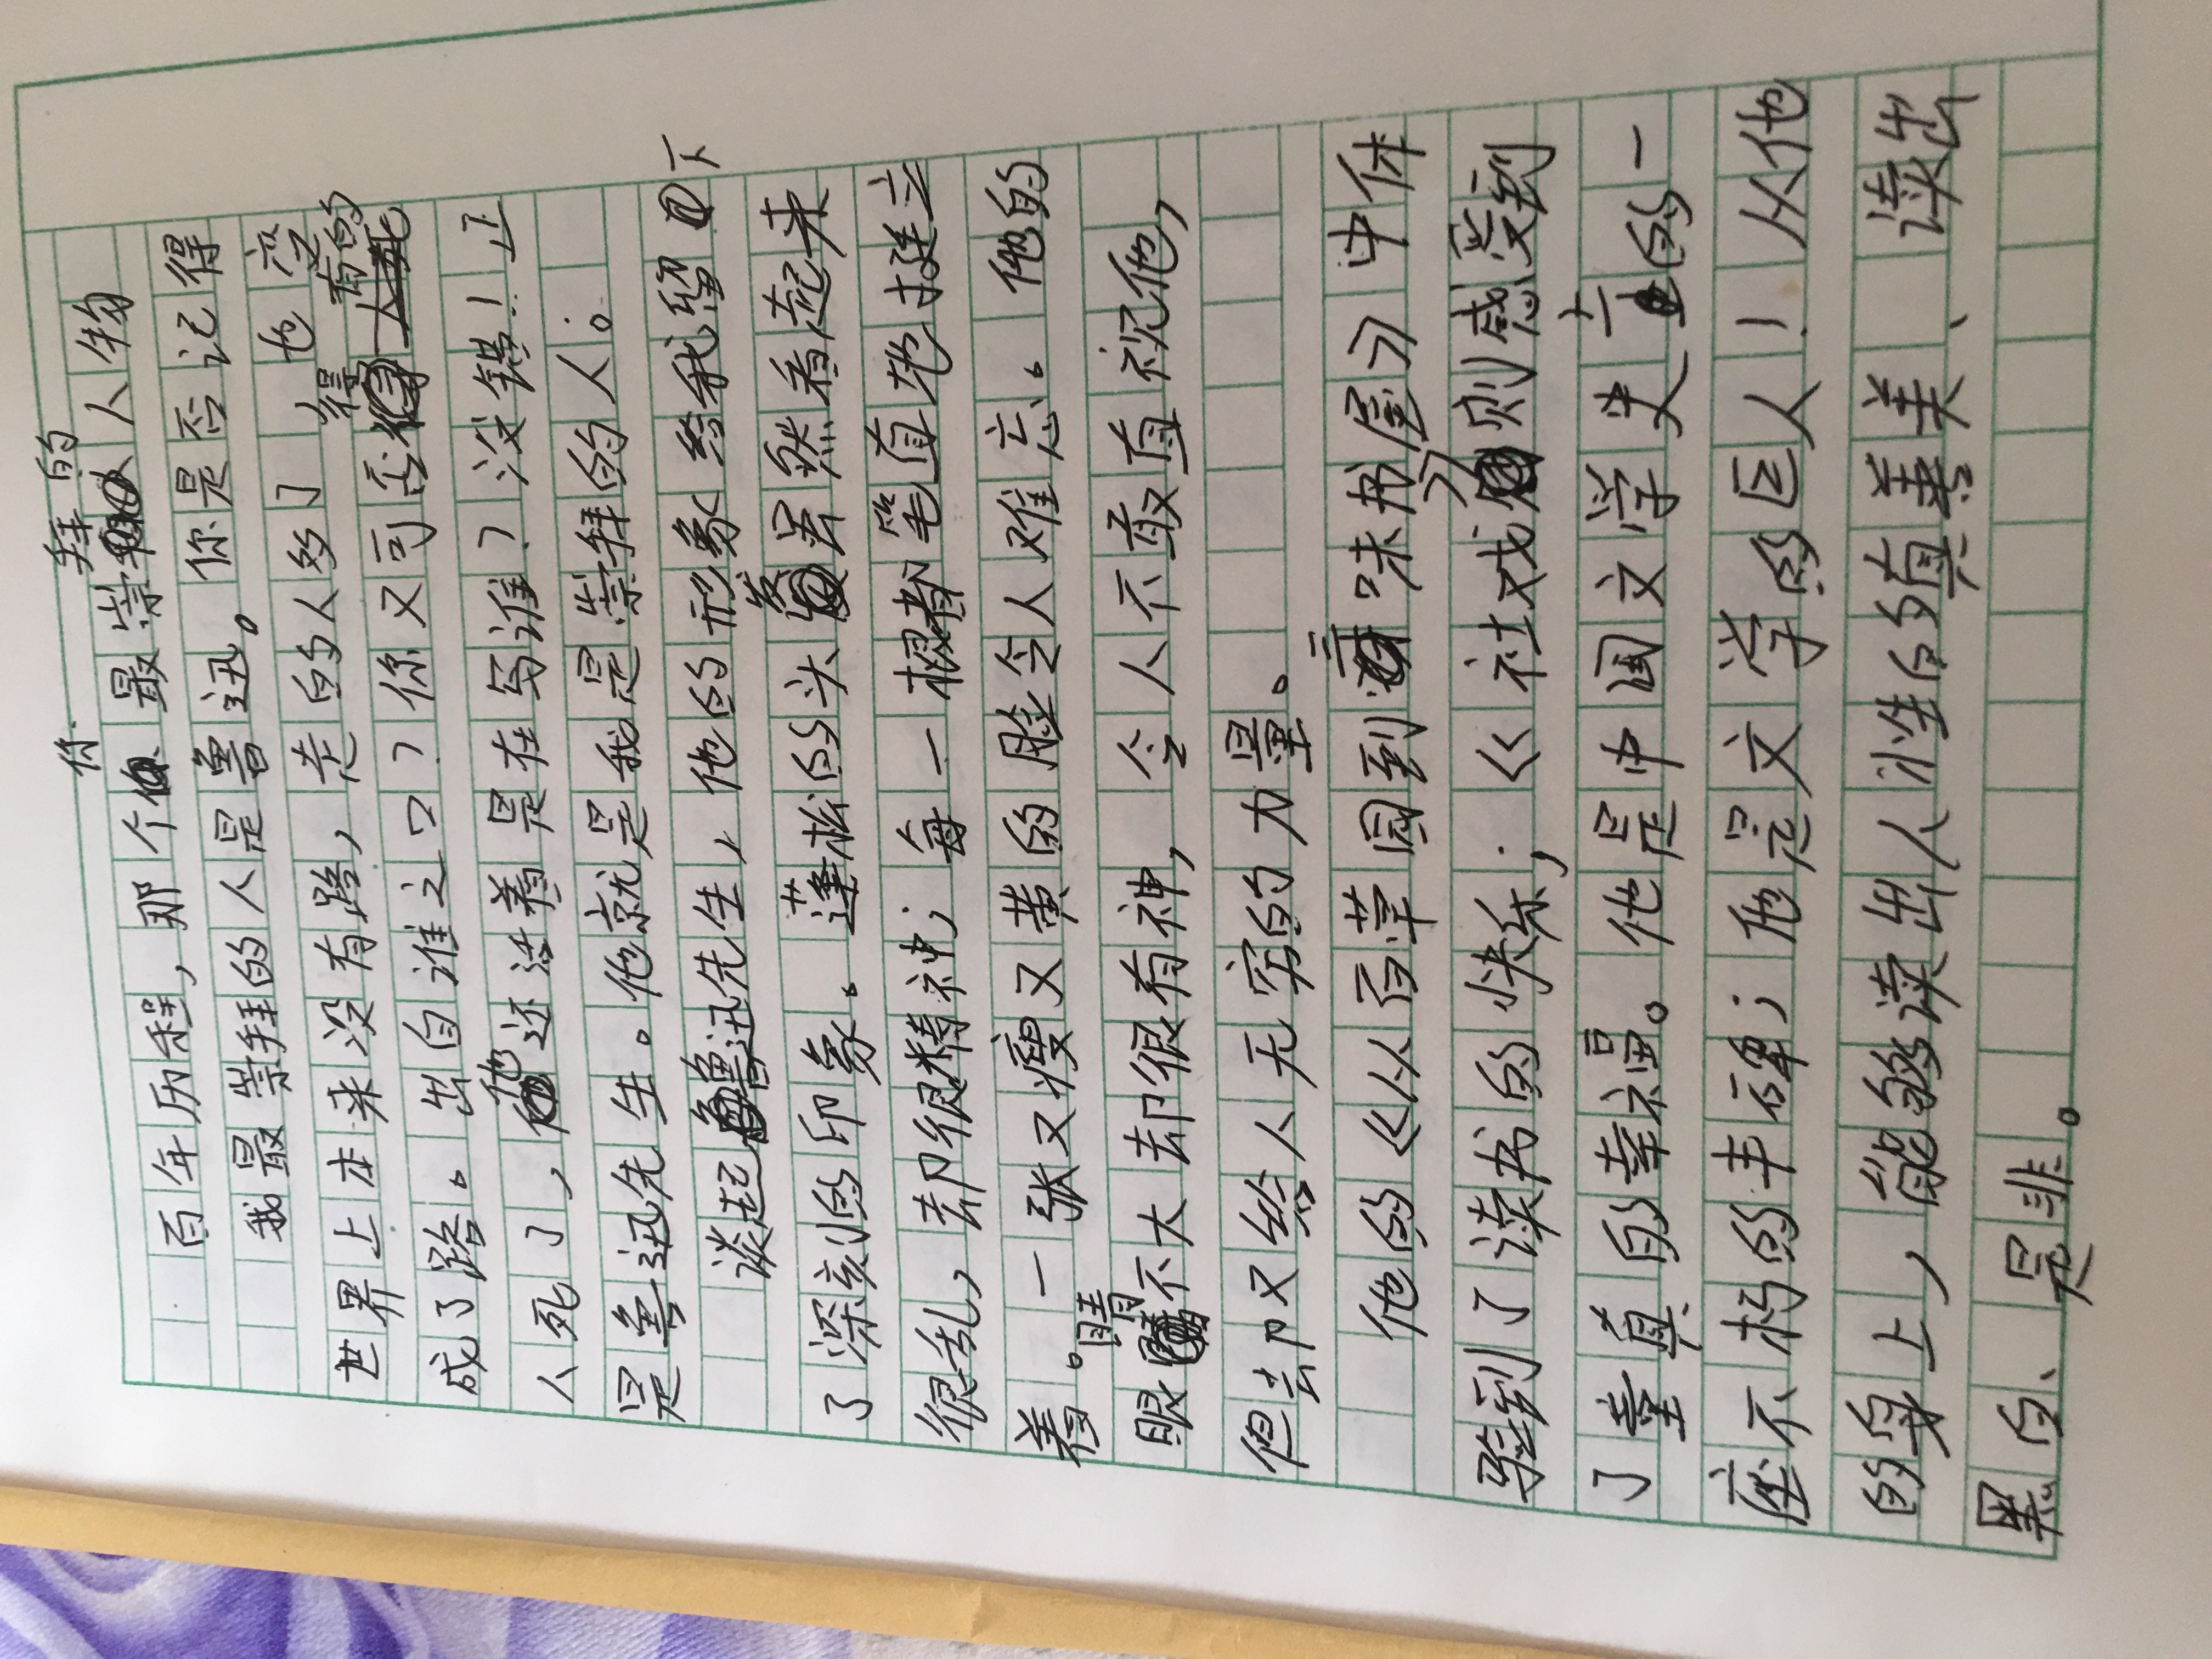 百年历程，那个你最崇拜的人物
我最崇拜的人是鲁迅。你是否记得
世界上本来没有路，走的人多了，也变
成了路。出自谁之口？你又可否得有的
人死了，他还活着是在写谁？没错！正
是鲁迅先生。他就是我最崇拜的人。
谈起鲁迅先生，他的形象给我留下
了深刻的印象。蓬松的头发虽然看起来
很乱，却很精神；每一根都笔直地挺立
着。一张又瘦又黄的脸令人难忘。他的
眼睛不大却很有神，令人不敢直视他，
但却又给人无穷的力量。
他的《从百草园到三味书屋》中体
验到了读书的快乐；《社戏》则感受到
了童真的幸福。他是中国文学史上的一
座不朽的丰碑；他是文学的巨人！从他
的身上，能够读出人性的真善美、读出
黑白、是非。